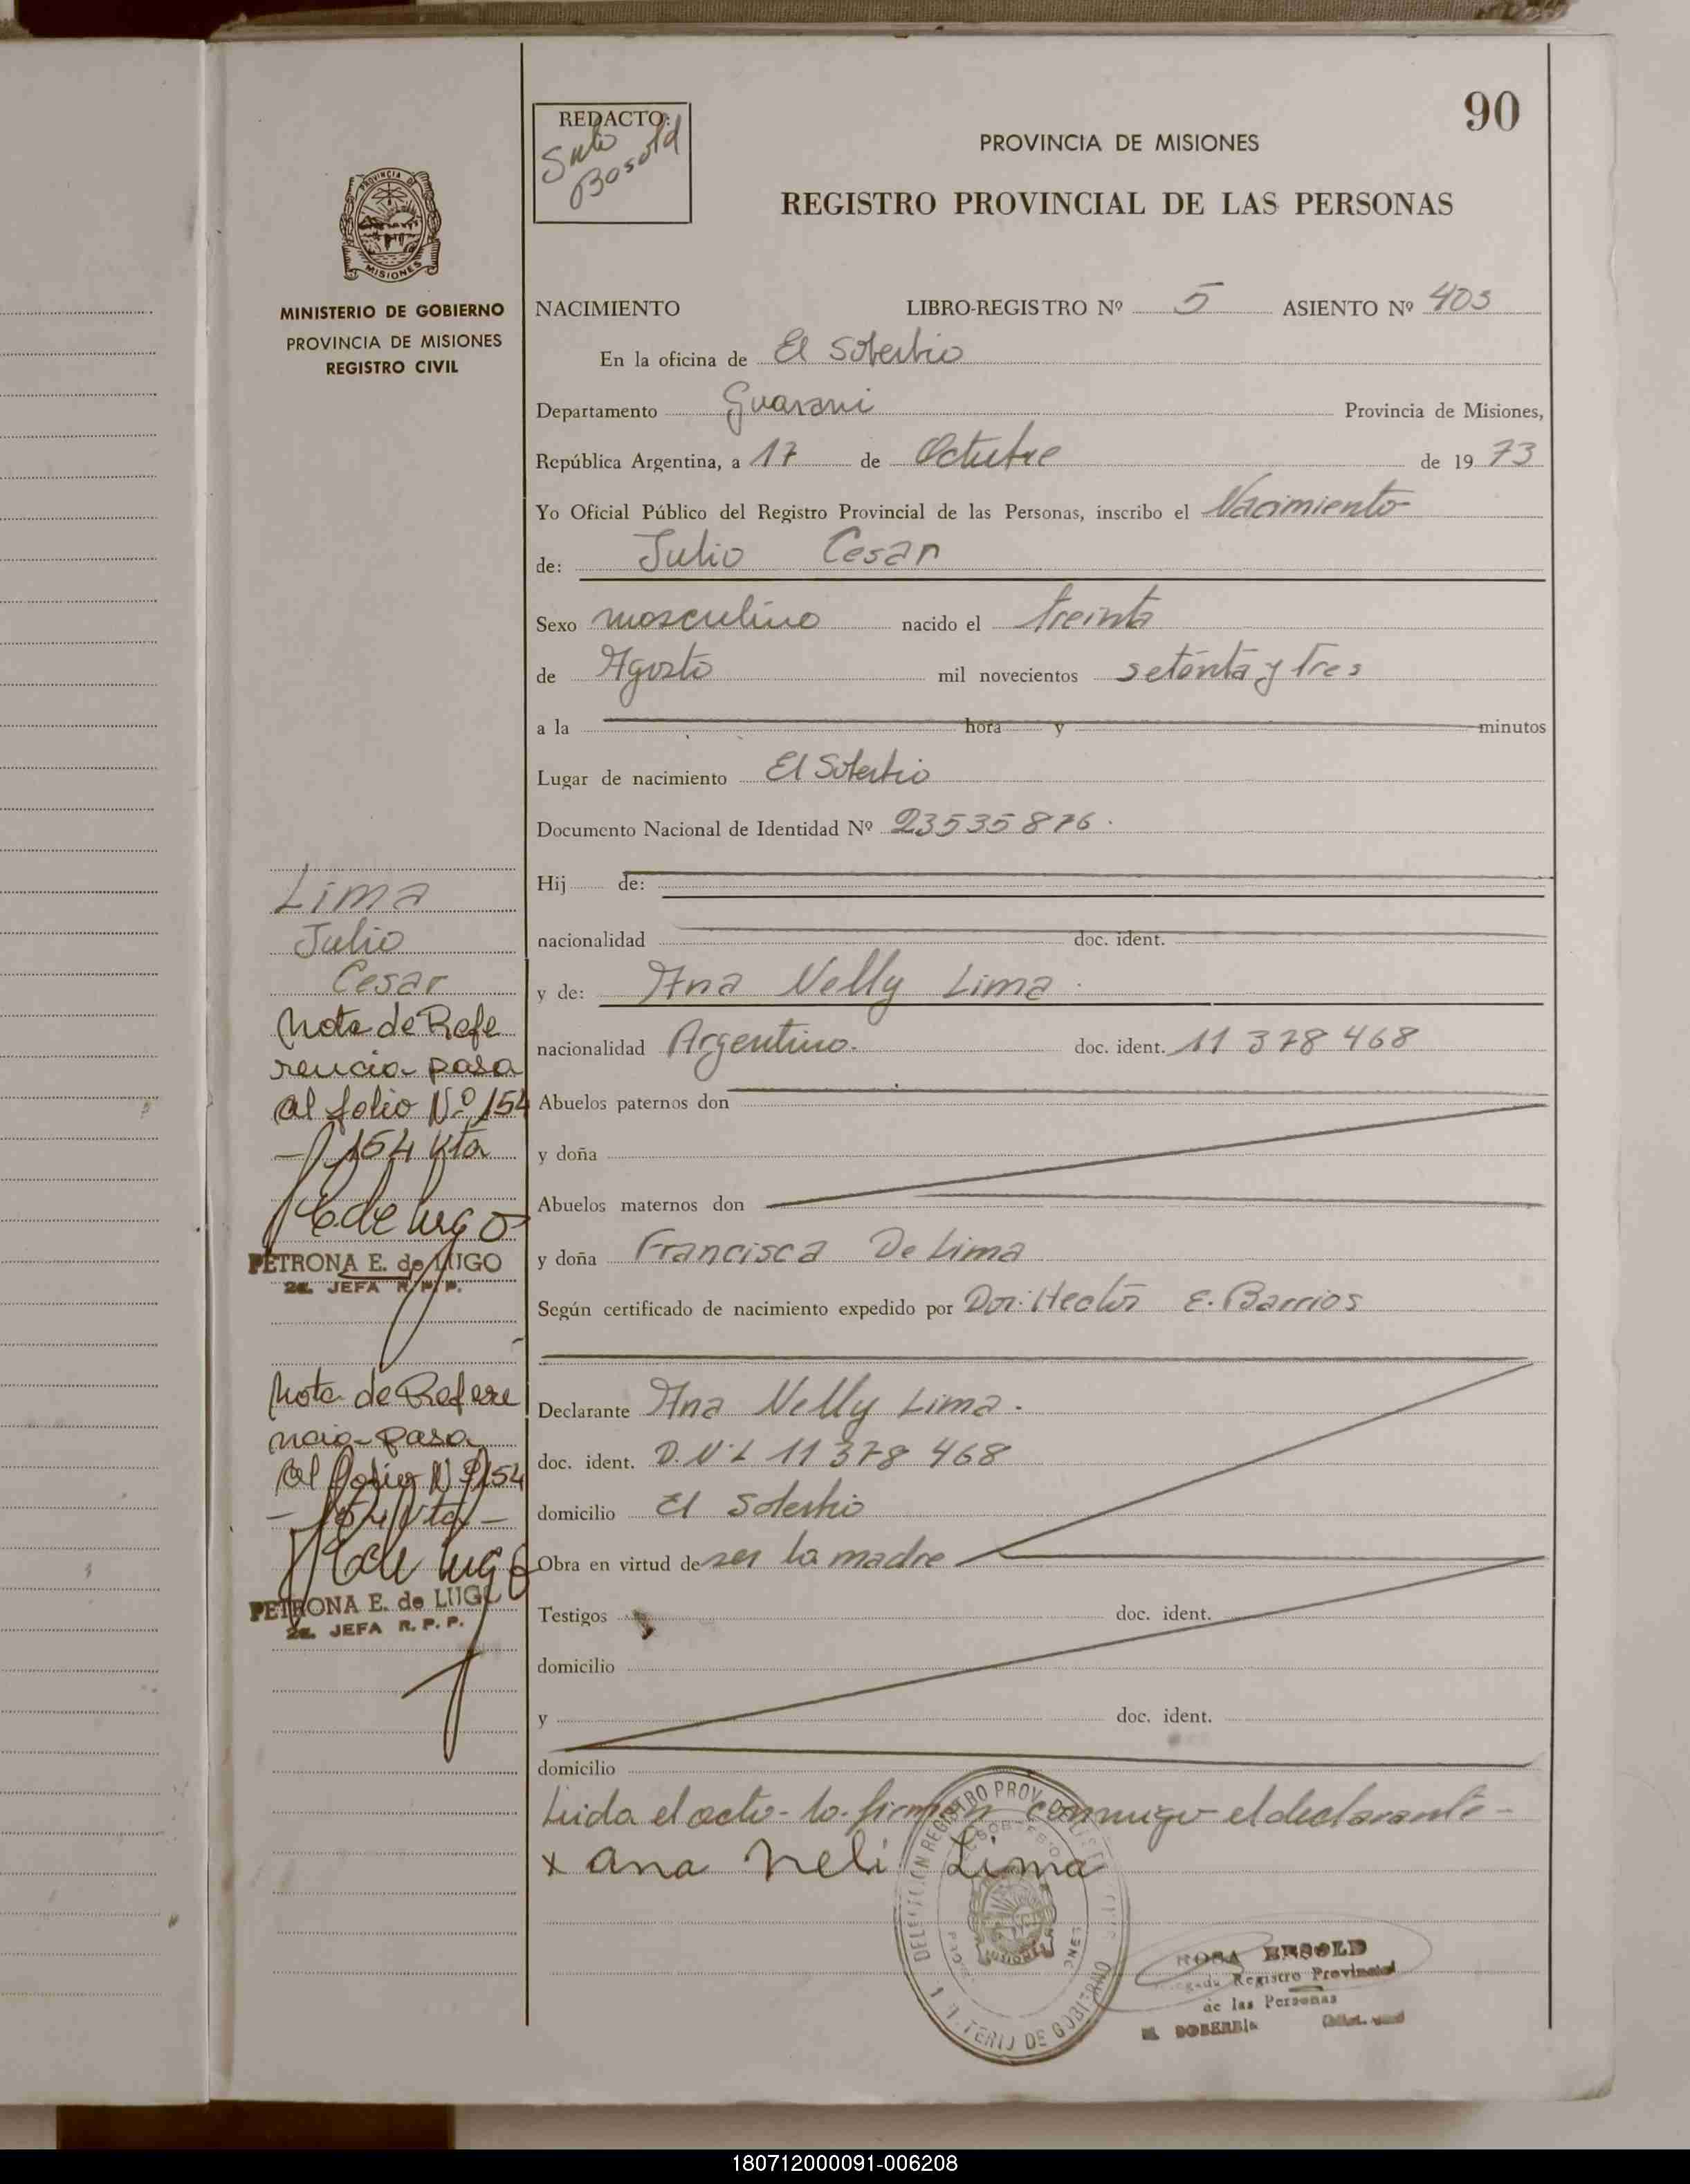 90
REDACTO:
Bosold
PROVINCIA DE MISIONES
REGISTRO PROVINCIAL DE LAS PERSONAS
PROVINCIA DE
MISIONES
MINISTERIO DE GOBIERNO
PROVINCIA DE MISIONES
REGISTRO CIVIL
NACIMIENTO LIBRO-REGISTRO Nº 5 ASIENTO Nº 403
En la oficina de El Soberbio
Departamento Guarani Provincia de Misiones,
República Argentina, a 17 de Octubre de 19 73
Yo Oficial Público del Registro Provincial de las Personas, inscribo el Nacimiento
de: Julio Cesar
Sexo masculino nacido el treinta
de Agosto mil novecientos setenta y Tres
a la hora y minutos
Lugar de nacimiento El Soberbio
Documento Nacional de Identidad Nº 23535876.
Hij de:
nacionalidad doc. ident.
y de: Ana Nelly Lima.
nacionalidad Argentina. doc. ident. 11 378 468
Abuelos paternos don
y doña
Abuelos maternos don
y doña Francisca De Lima
Según certificado de nacimiento expedido por Dor. Hector E. Barrios
Declarante Ana Nelly Lima.
doc. ident. D.N.I. 11 378 468
domicilio El Soberbio
Obra en virtud de ser la madre
Testigos doc. ident.
domicilio
y doc. ident.
domicilio
Leida el acta lo firman conmigo el declarante-
x ana neli Lima
Lima
Julio
Cesar
Nota de Refe
rencia pasa
al folio Nº 154
154 Vta
E de Lugo
PETRONA E. de LUGO
2a. JEFA R. P. P.
Nota de Refere
ncia pasa
al folio Nº 154
154 Vta -
E de Lugo
PETRONA E. de LUGO
2a. JEFA R. P. P.
ROSA BOSOLD
Registro Provincial
de las Personas
180712000091-006208